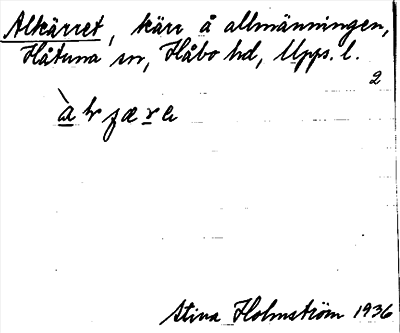 Alkärret, kärr å allmänningen,
Håtuna sn, Håbo hd, Upps. l.
2
Stina Holmström 1936